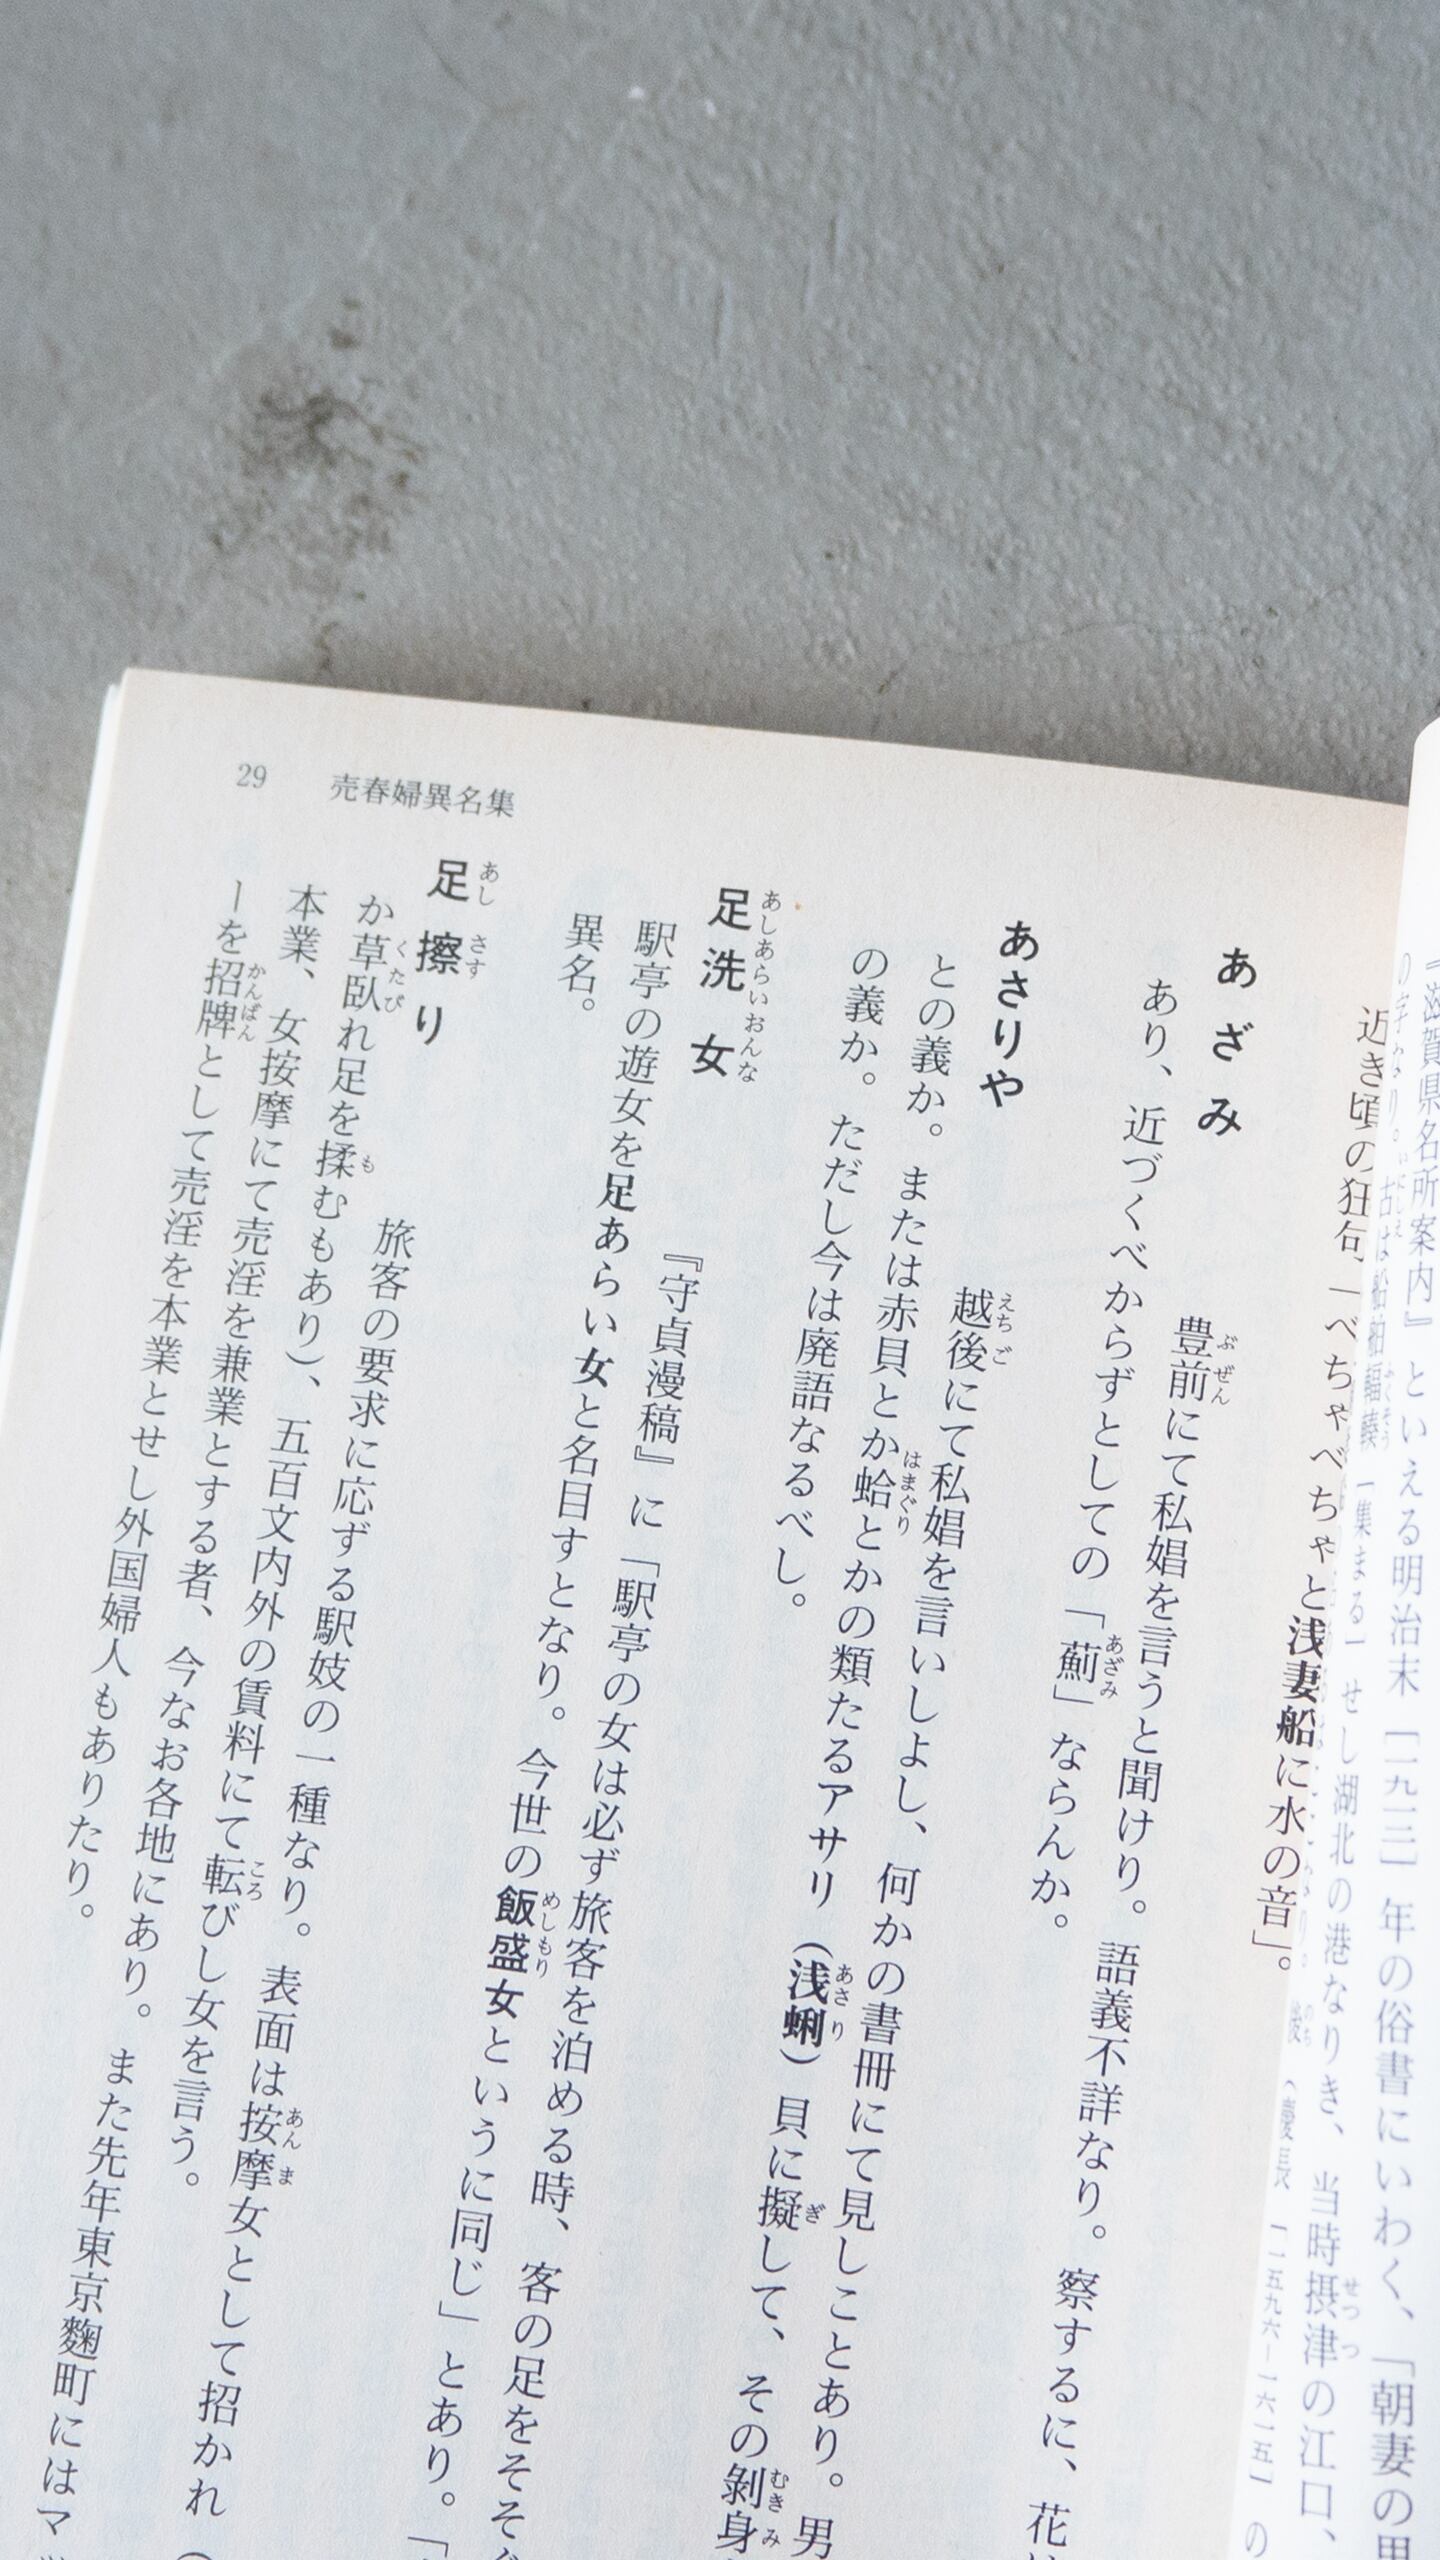 29 売春婦異名集
『滋賀県名所案内』といえる明治末［一九一三］年の俗書にいわく、「朝妻の
せし湖北の港なりき、当時摂津の江口、
近き頃の狂句「べちゃべちゃと浅妻船に水の音」。
あざみ 豊前にて私娼を言うと聞けり。語義不詳なり。察するに、花
あり、近づくべからずとしての「薊」ならんか。
あさりや 越後にて私娼を言いしよし、何かの書冊にて見しことあり。男
との義か。または赤貝とか蛤とかの類たるアサリ（浅蜊）貝に擬して、その剝身
の義か。ただし今は廃語なるべし。
足洗女 『守貞漫稿』に「駅亭の女は必ず旅客を泊める時、客の足をそそ
駅亭の遊女を足あらい女と名目すとなり。今世の飯盛女というに同じ」とあり。「
異名。
足擦り 旅客の要求に応ずる駅妓の一種なり。表面は按摩女として招かれ（
か草臥れ足を揉むもあり）、五百文内外の賃料にて転びし女を言う。
本業、女按摩にて売淫を兼業とする者、今なお各地にあり。また先年東京麴町にはマッ
ーを招牌として売淫を本業とせし外国婦人もありたり。